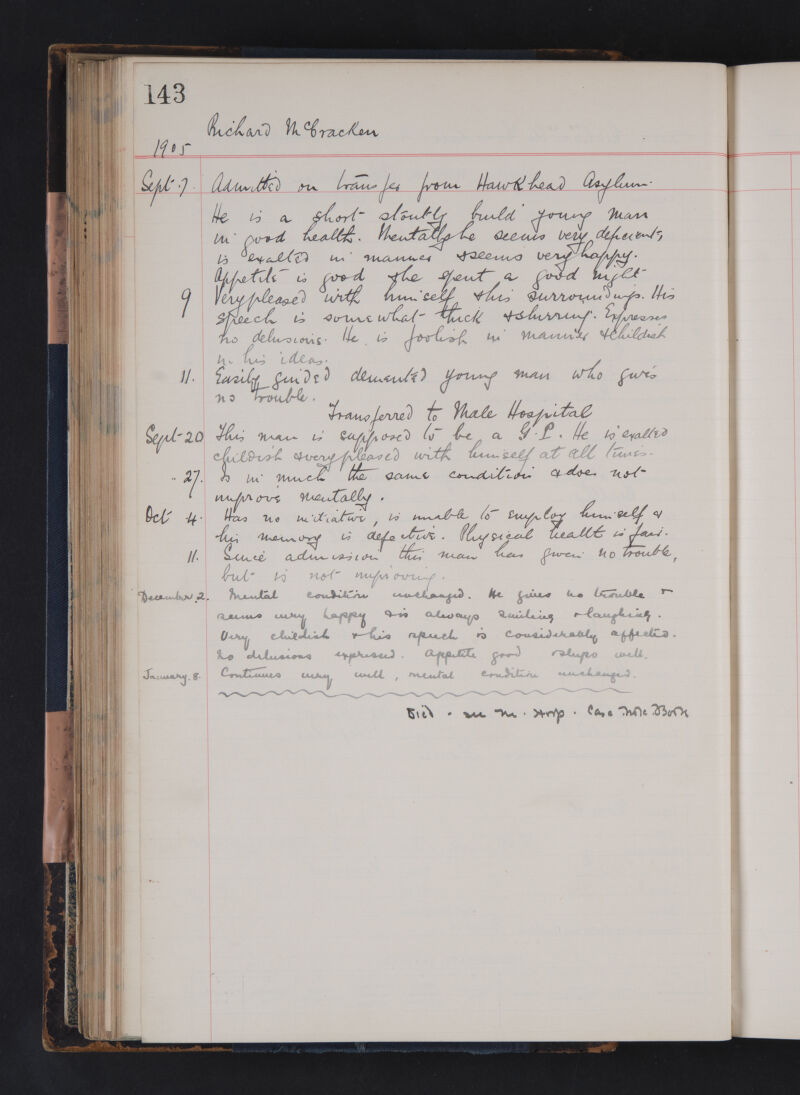 143
Richard McCracken
1905
Sept. 7. Admitted on transfer from Hawkhead Asylum.
He is a short stoutly build young man
in good health. Mentally he seems very deficient,
is exalted in manner & seems very happy.
Appetite is good & he spent a good night
9 Very pleased with himself & his surroundings. His
speech is somewhat thick & slurring. Expresses
no delusions. He is foolish in manner & childish
in his ideas.
11. Easily guided demented young man who gives
no trouble.
Transferred to Male Hospital
Sept 20 This man is supposed to be a G.P. He is exalted
childish & very pleased with himself at all times.
" 27. Is in much the same condition & does not
improve mentally.
Oct 4. Has no initiative, is unable to employ himself &
his memory is defective. Physical health is fair.
11. Since admission this man has given no trouble,
but is not improving.
December 2. Mental condition unchanged. He gives no trouble &
seems very happy & is always smiling & laughing.
Very childish & his speech is considerably affected.
No delusions expressed. Appetite good & sleeps well.
January 8. Continues very well, mental condition unchanged.
Died - see M. Hosp. Case Note Book